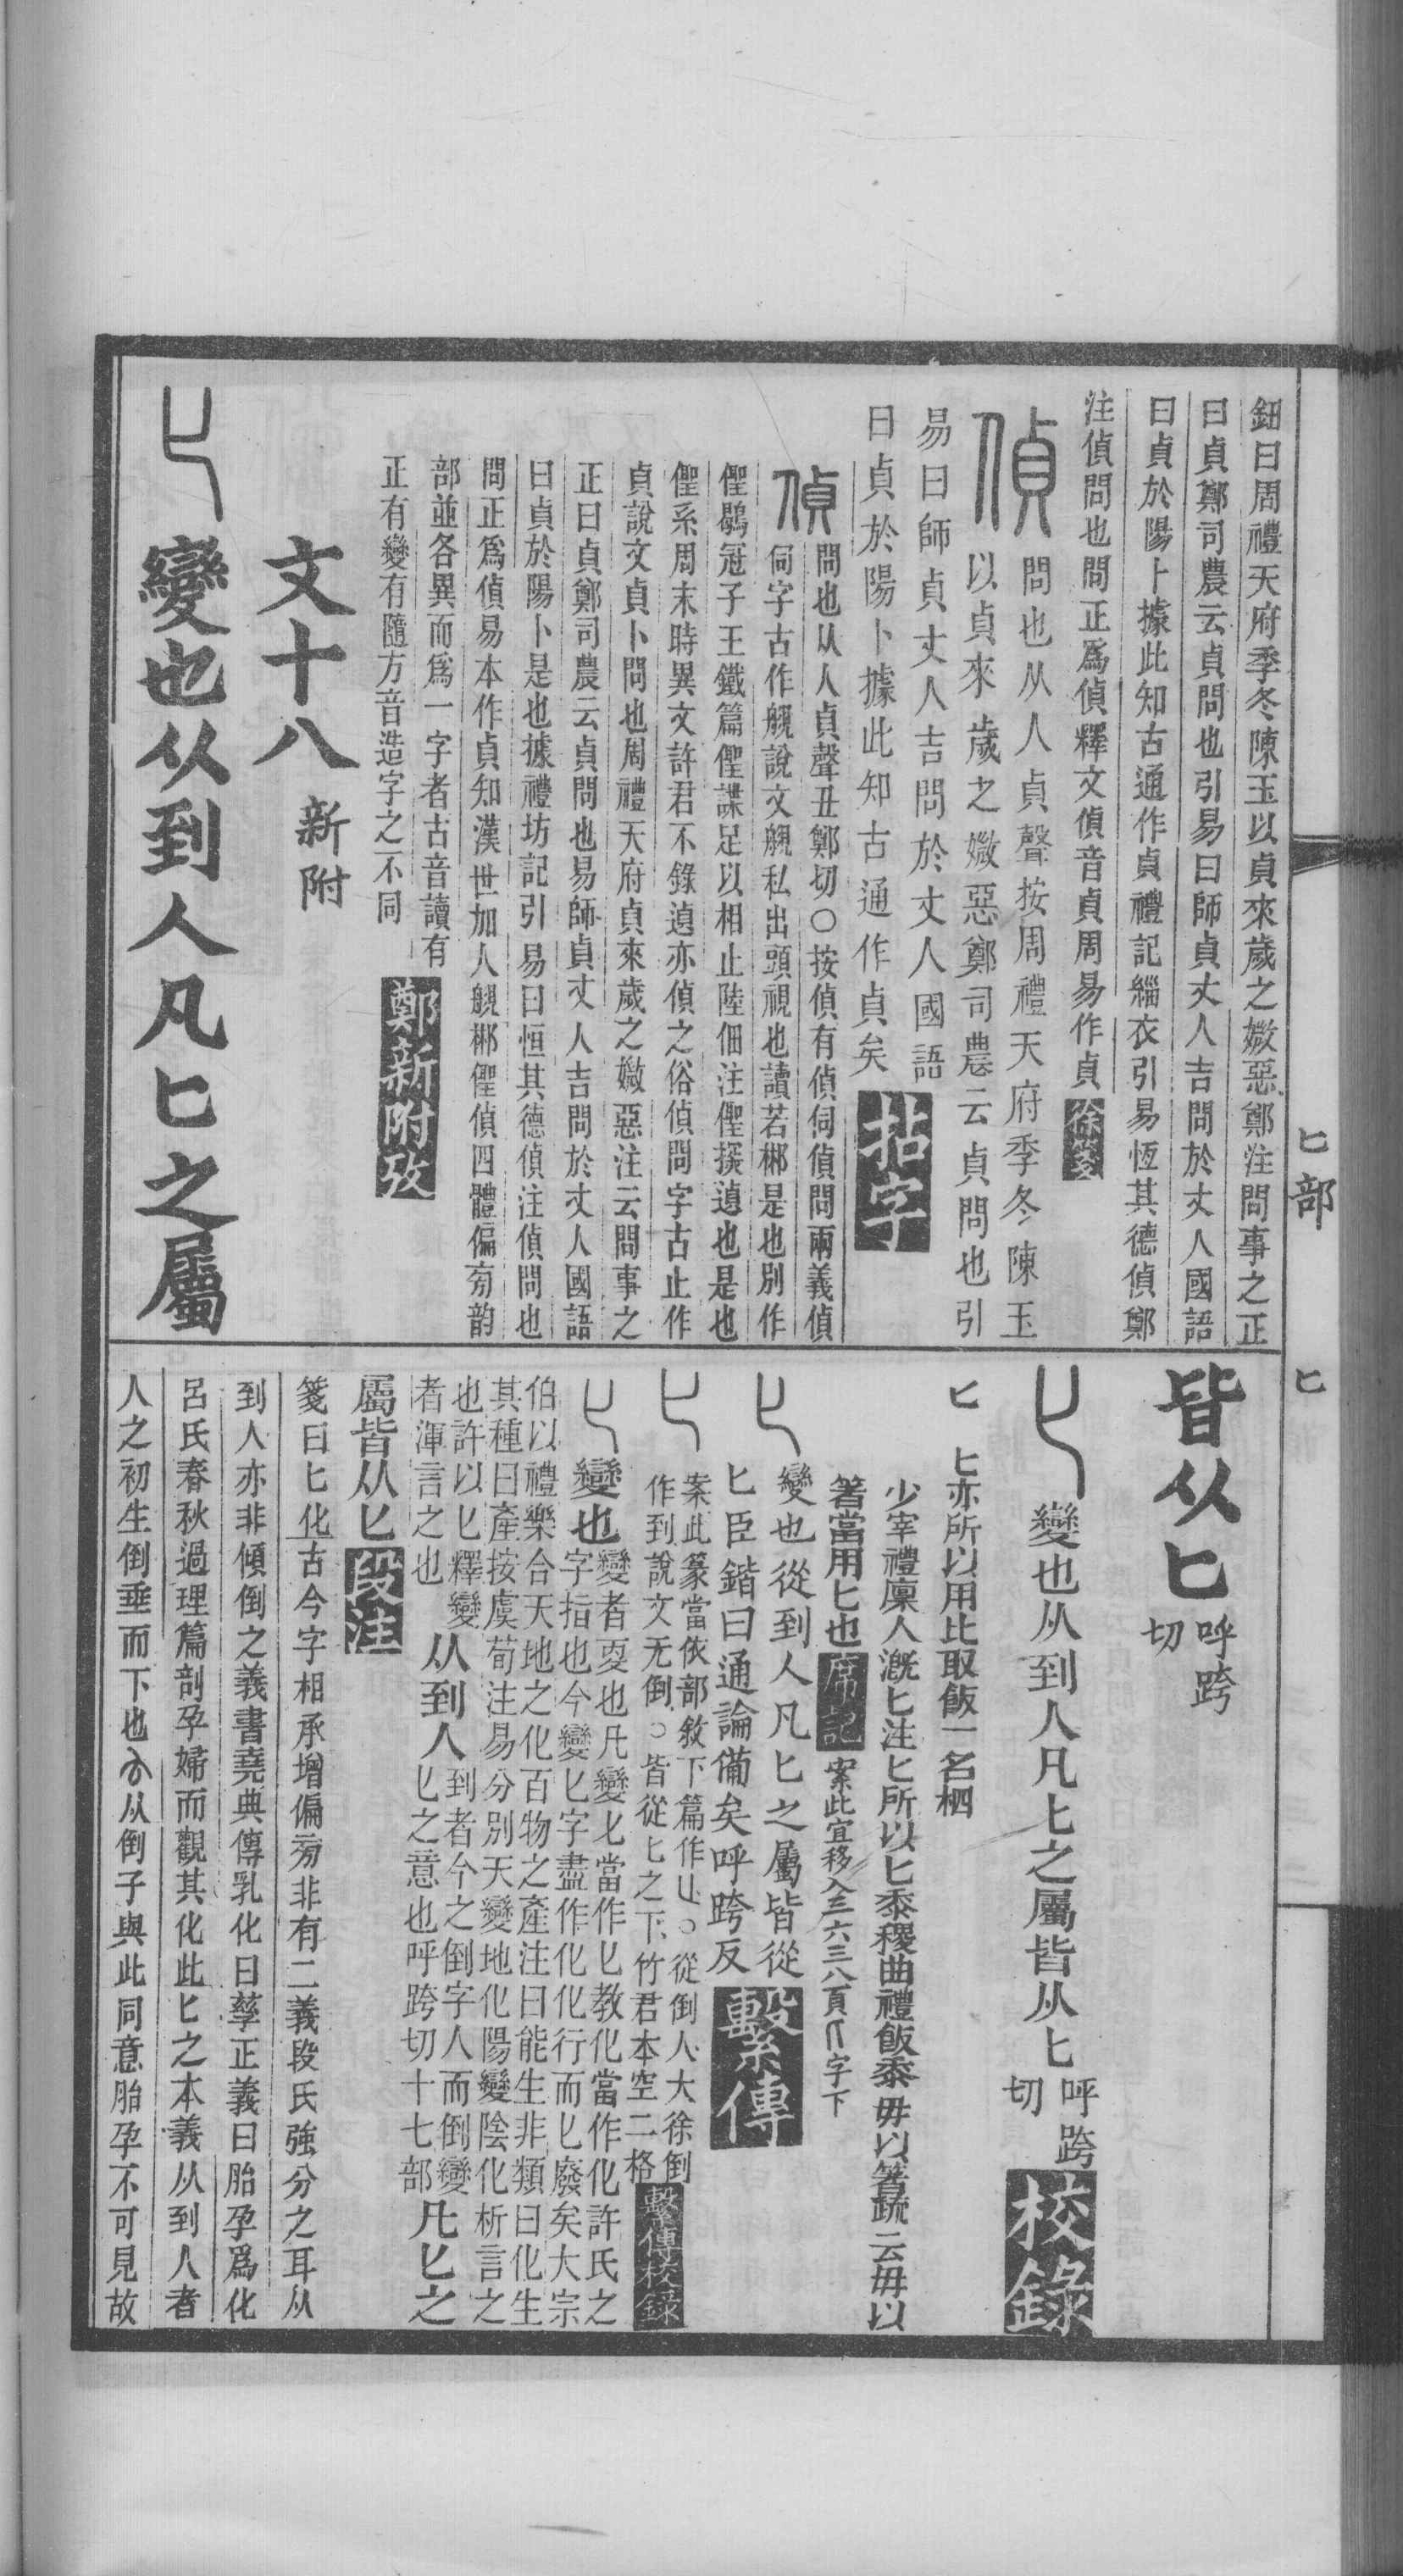 鈕曰周禮天府季冬陳玉以貞來歲之媺惡鄭注問事之正
曰貞鄭司農云貞問也引易曰師貞丈人吉問於丈人國語
曰貞於陽卜據此知古通作貞禮記緇衣引易恆其德偵鄭
注偵問也問正爲偵釋文偵音貞周易作貞 徐箋
偵
問也从人貞聲按周禮天府季冬陳玉
以貞來歲之媺惡鄭司農云貞問也引
易曰師貞丈人吉問於丈人國語
曰貞於陽卜據此知古通作貞矣 拈字
偵
問也从人貞聲丑鄭切○按偵有偵伺偵問兩義偵
伺字古作覘說文覘私出頭視也讀若郴是也別作
偵鶡冠子王鐵篇偵諜足以相止陸佃注偵探遉也是也
偵系周末時異文許君不錄遉亦偵之俗偵問字古止作
貞說文貞卜問也周禮天府貞來歲之媺惡注云問事之
正曰貞鄭司農云貞問也易師貞丈人吉問於丈人國語
曰貞於陽卜是也據禮坊記引易曰恒其德偵注偵問也
問正爲偵易本作貞知漢世加人覘郴偵偵四體偏旁韵
部並各異而爲一字者古音讀有
正有變有隨方音造字之不同 鄭新附攷
文十八 新附
變也从到人凡匕之屬
皆从匕 呼跨切
變也从到人凡匕之屬皆从匕 呼跨切 校錄
匕 匕亦所以用比取飯一名柶
少宰禮廩人溉匕注匕所以匕黍稷曲禮飯黍毋以箸疏云毋以
箸當用匕也 席記 案此宜移入三六三八頁 字下
變也從到人凡匕之屬皆從
匕臣鍇曰通論備矣呼跨反 繫傳
案此篆當依部敘下篇作 ○從倒人大徐倒
作到說文无倒○皆從匕之下竹君本空二格 繫傳校錄
變也 變者㪅也凡變匕當作匕教化當作化許氏之
字指也今變匕字盡作化化行而匕廢矣大宗
伯以禮樂合天地之化百物之產注曰能生非類曰化生
其種曰產按虞荀注易分別天變地化陽變陰化析言之
也許以匕釋變
者渾言之也 从到人 到者今之倒字人而倒變
匕之意也呼跨切十七部 凡匕之
屬皆从匕 段注
箋曰匕化古今字相承增偏旁非有二義段氏強分之耳从
到人亦非傾倒之義書堯典傳乳化曰孳正義曰胎孕爲化
呂氏春秋過理篇剖孕婦而觀其化此匕之本義从到人者
人之初生倒垂而下也 从倒子與此同意胎孕不可見故
匕部 匕